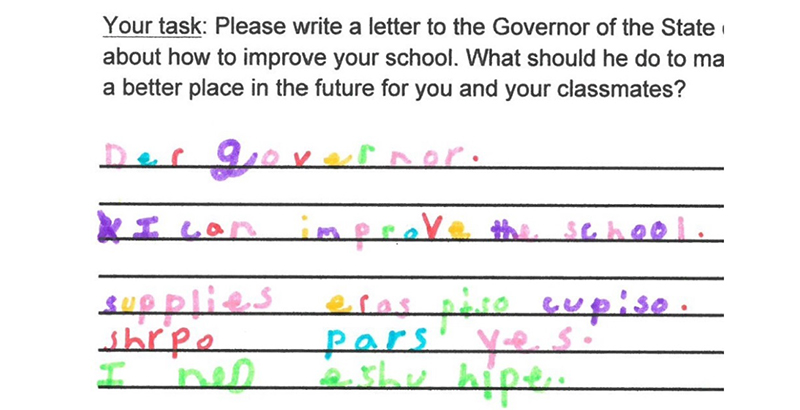 Your task: Please write a letter to the Governor of the State
about how to improve your school. What should he do to ma
a better place in the future for you and your classmates?
Der governor.
I can improve the school.
supplies eras piso cupiso.
shrpo pars yes.
I ned eshu hipt.